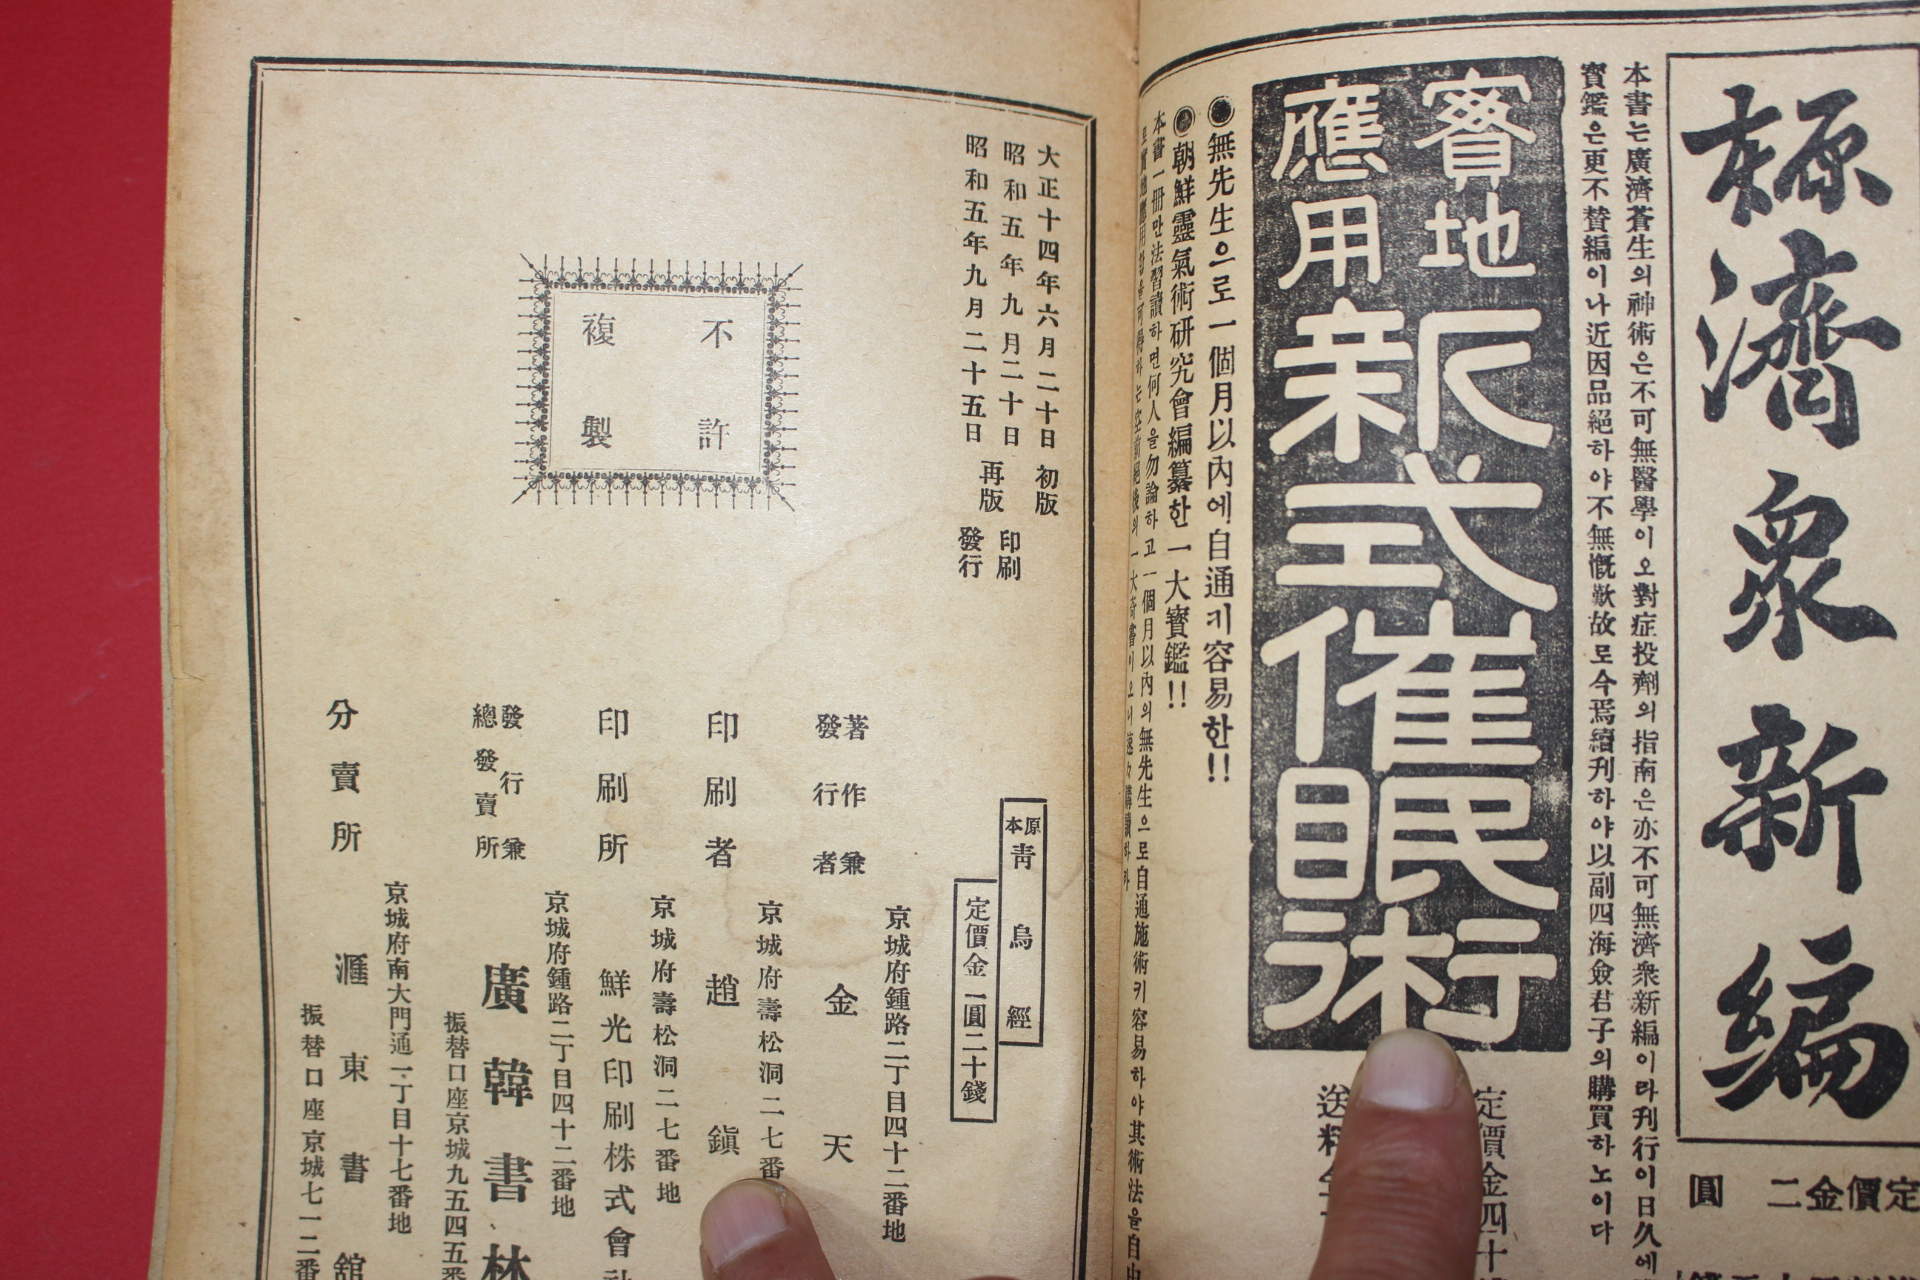 標濟衆新編
定價金二圓
本書는廣濟蒼生의神術은不可無醫學이오對症投劑의指南은亦不可無濟衆新編이라刊行이日久에
寶鑑은更不賛編이나近因品絕하야不無慨歎故로今焉續刊하야以副四海僉君子의購買하노이다
實地
應用
新式催眠術
定價金四十
送料金
◉無先生으로一個月以內에自通키容易한!!
◉朝鮮靈氣術研究會編纂한一大寶鑑!!
本書一冊만法習讀하면何人을勿論하고一個月以內의無先生으로自通施術키容易하야其術法을自由
大正十四年六月二十日 初版
昭和五年九月二十日 再版 印刷
昭和五年九月二十五日 發行
不許
複製
原本 靑烏經
定價金一圓二十錢
京城府鍾路二丁目四十二番地
著作兼
發行者 金天
京城府壽松洞二七番
印刷者 趙鎭
京城府壽松洞二七番地
印刷所 鮮光印刷株式會社
京城府鍾路二丁目四十二番地
發行兼
總發賣所 廣韓書林
振替口座京城九五四五番
京城府南大門通一丁目十七番地
分賣所 滙東書舘
振替口座京城七一二番